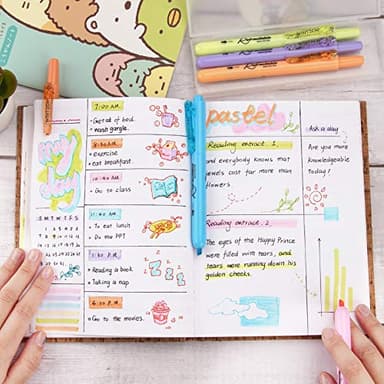 7:00 A.M.
• Get out of bed.
• wash gargle.
8:30 A.M
• exercise
• eat breakfast.
10:40 A.M
• Go to class
11:40 A.M
• To eat lunch
• Do the PPT
• Reading a book
• Taking a nap
6:30 P.M
• Go to the movies.
my
day
S M T W T F S
pastel
Reading extract. 1.
and everybody knows that
jewels cost far more than
flowers
Reading extract. 2.
The eyes of the Happy Prince
were filled with tears, and
tears were running down his
golden cheeks.
Ask a day
Are you more
knowledgeable
today!